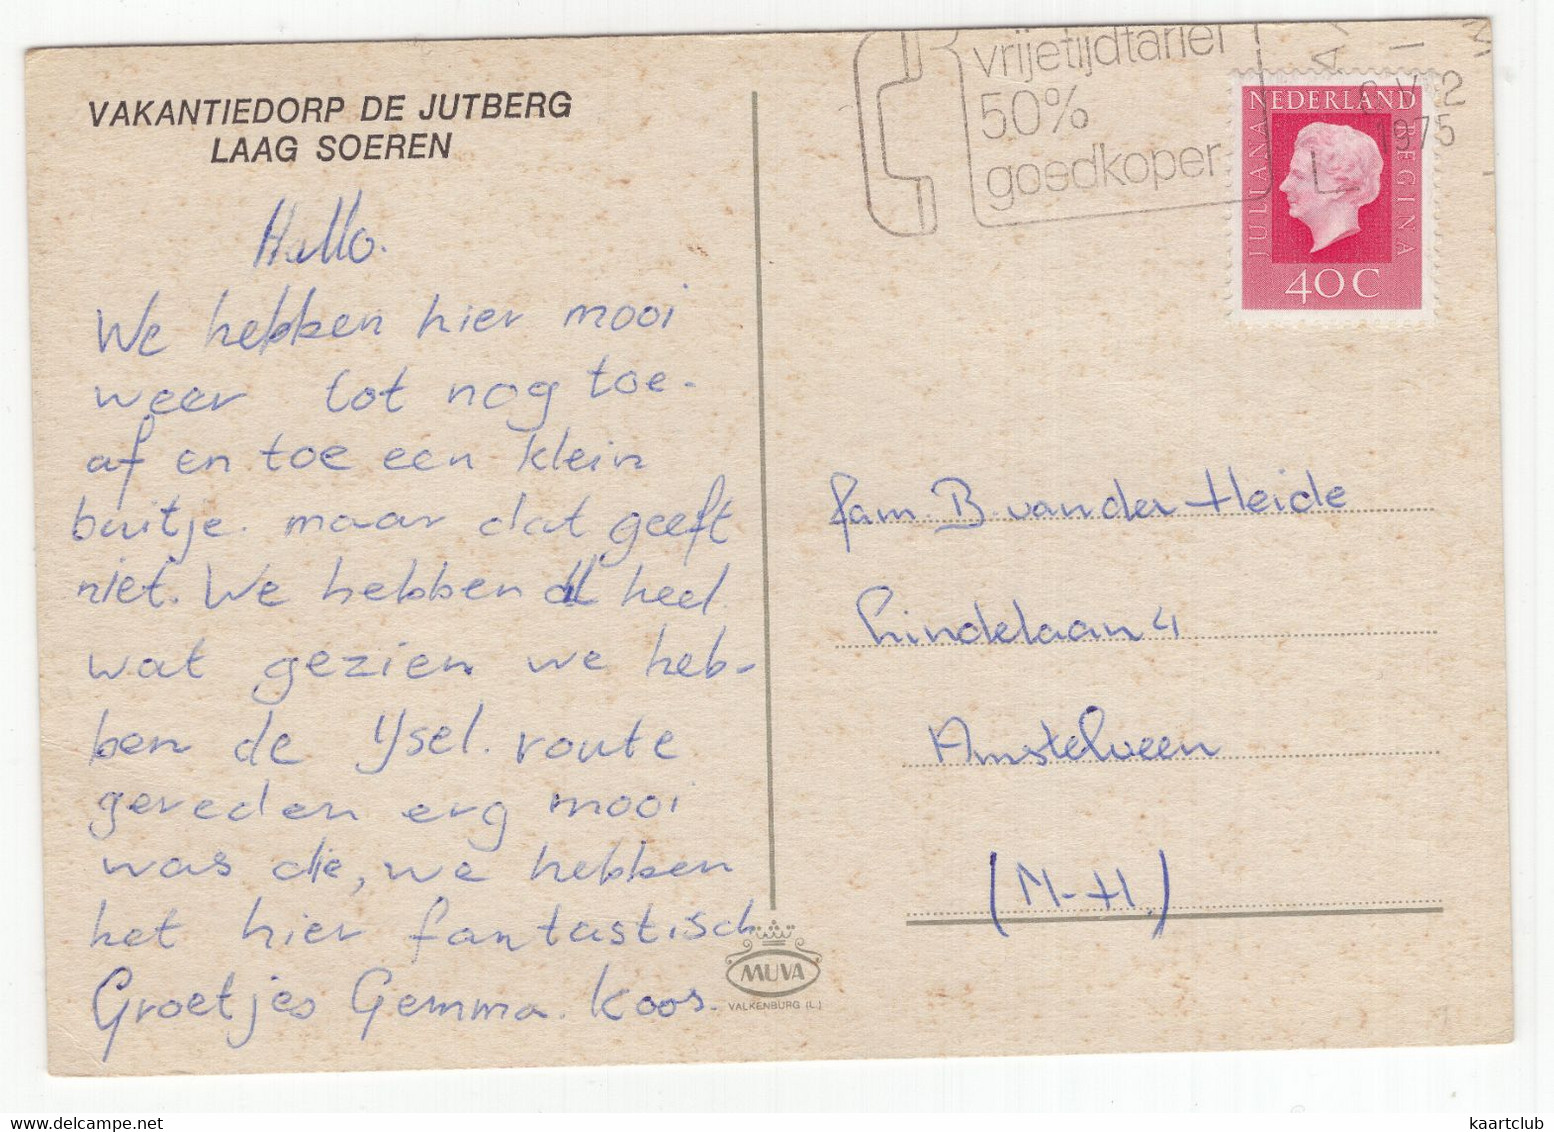 VAKANTIEDORP DE JUTBERG
LAAG SOEREN
Hallo.
We hebben hier mooi
weer tot nog toe.
af en toe een klein
buitje. maar dat geeft
niet. We hebben al heel
wat gezien we heb-
ben de Ysel. route
gereden erg mooi
was die, we hebben
het hier fantastisch
Groetjes Gemma. Koos.
MUVA
VALKENBURG (L.)
vrijetijdtarief
50%
goedkoper
1975
NEDERLAND
JULIANA
REGINA
40C
fam. B. van der Heide
Lindelaan 4
Amstelveen
(N-H.)
kaartclub